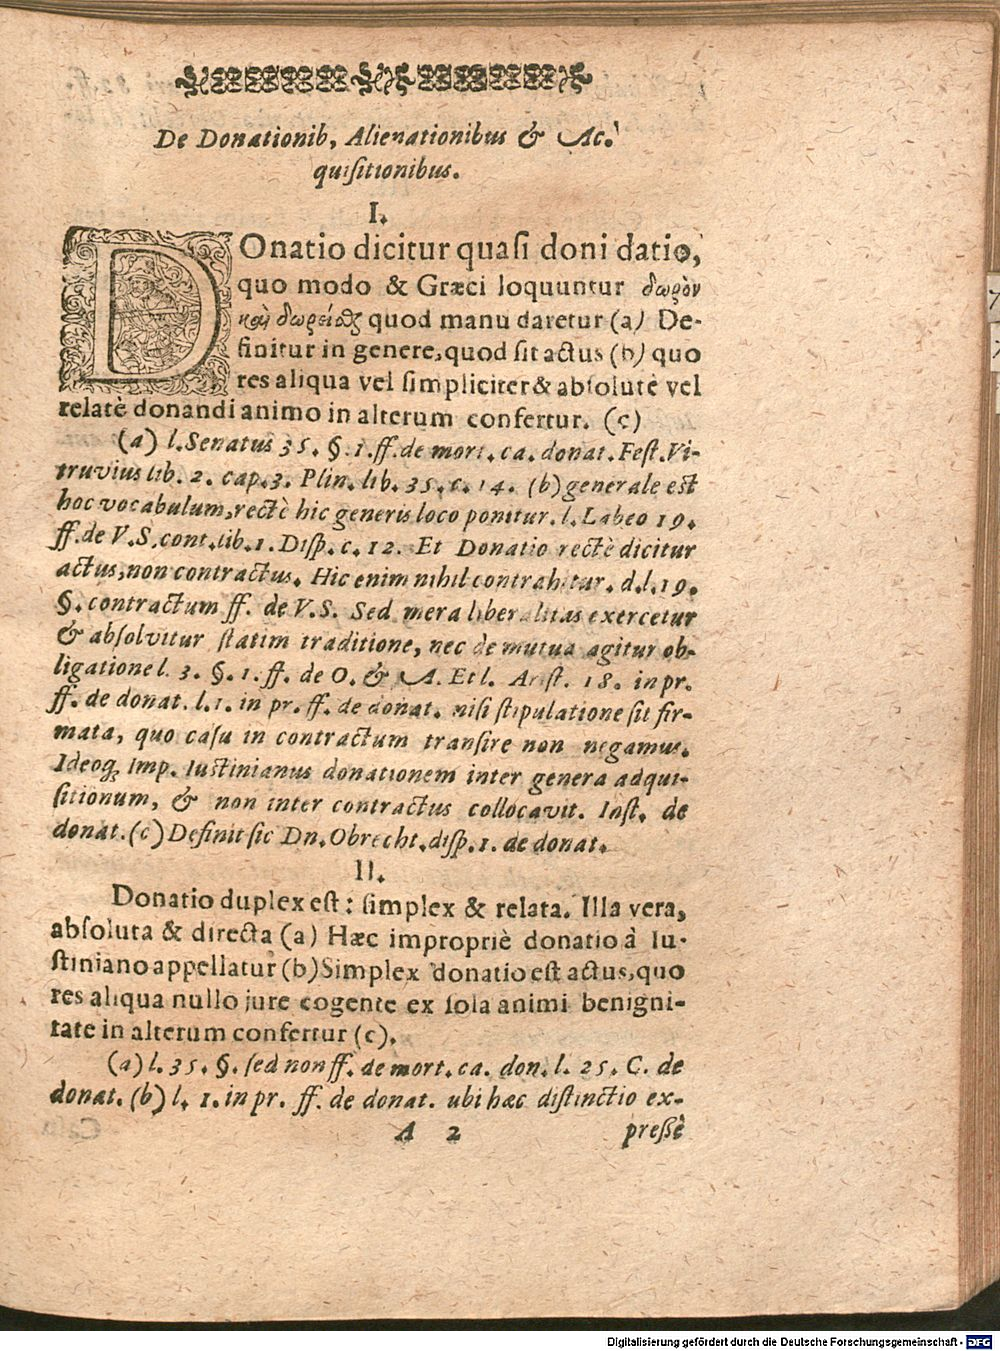 De Donationib, Alienationibus & Ac-
quiſitionibus.
I.
DOnatio dicitur quaſi doni datio,
quo modo & Græci loquuntur δωρὸν
καὶ δωρεῖσθ quod manu daretur (a) De-
finitur in genere, quod ſit actus (b) quo
res aliqua vel ſimpliciter & abſolutè vel
relatè donandi animo in alterum confertur. (c)
(a) l. Senatus 35. §. 1. ff. de mort. ca. donat. Feſt. Vi-
truvius lib. 2. cap. 3. Plin. lib. 35. c. 14. (b) generale est
hoc vocabulum, rectè hic generis loco ponitur. l. Labeo 19.
ff. de V.S. cont. lib. 1. Diſp. c. 12. Et Donatio rectè dicitur
actus, non contractus. Hic enim nihil contrahitur. d.l. 19.
§. contractum ff. de V.S. Sed mera liberalitas exercetur
& abſolvitur ſtatim traditione, nec de mutua agitur ob-
ligatione l. 3. §. 1. ff. de O. & A. Et l. Arist. 18. in pr.
ff. de donat. l. 1. in pr. ff. de donat. niſi ſtipulatione ſit fir-
mata, quo caſu in contractum tranſire non negamus.
Ideoq; Imp. Iustinianus donationem inter genera adqui-
ſitionum, & non inter contractus collocavit. Inſt. de
donat. (c) Definit ſic Dn. Obrecht. diſp. 1. de donat.
II.
Donatio duplex eſt: ſimplex & relata. Illa vera,
abſoluta & directa (a) Hæc impropriè donatio à Iu-
ſtiniano appellatur (b) Simplex donatio eſt actus, quo
res aliqua nullo jure cogente ex ſola animi benigni-
tate in alterum confertur (c).
(a) l. 35. §. ſed non ff. de mort. ca. don. l. 25. C. de
donat. (b) l. 1. in pr. ff. de donat. ubi hæc diſtinctio ex-
A 2 preſſè
Digitalisierung gefördert durch die Deutsche Forschungsgemeinschaft - DFG